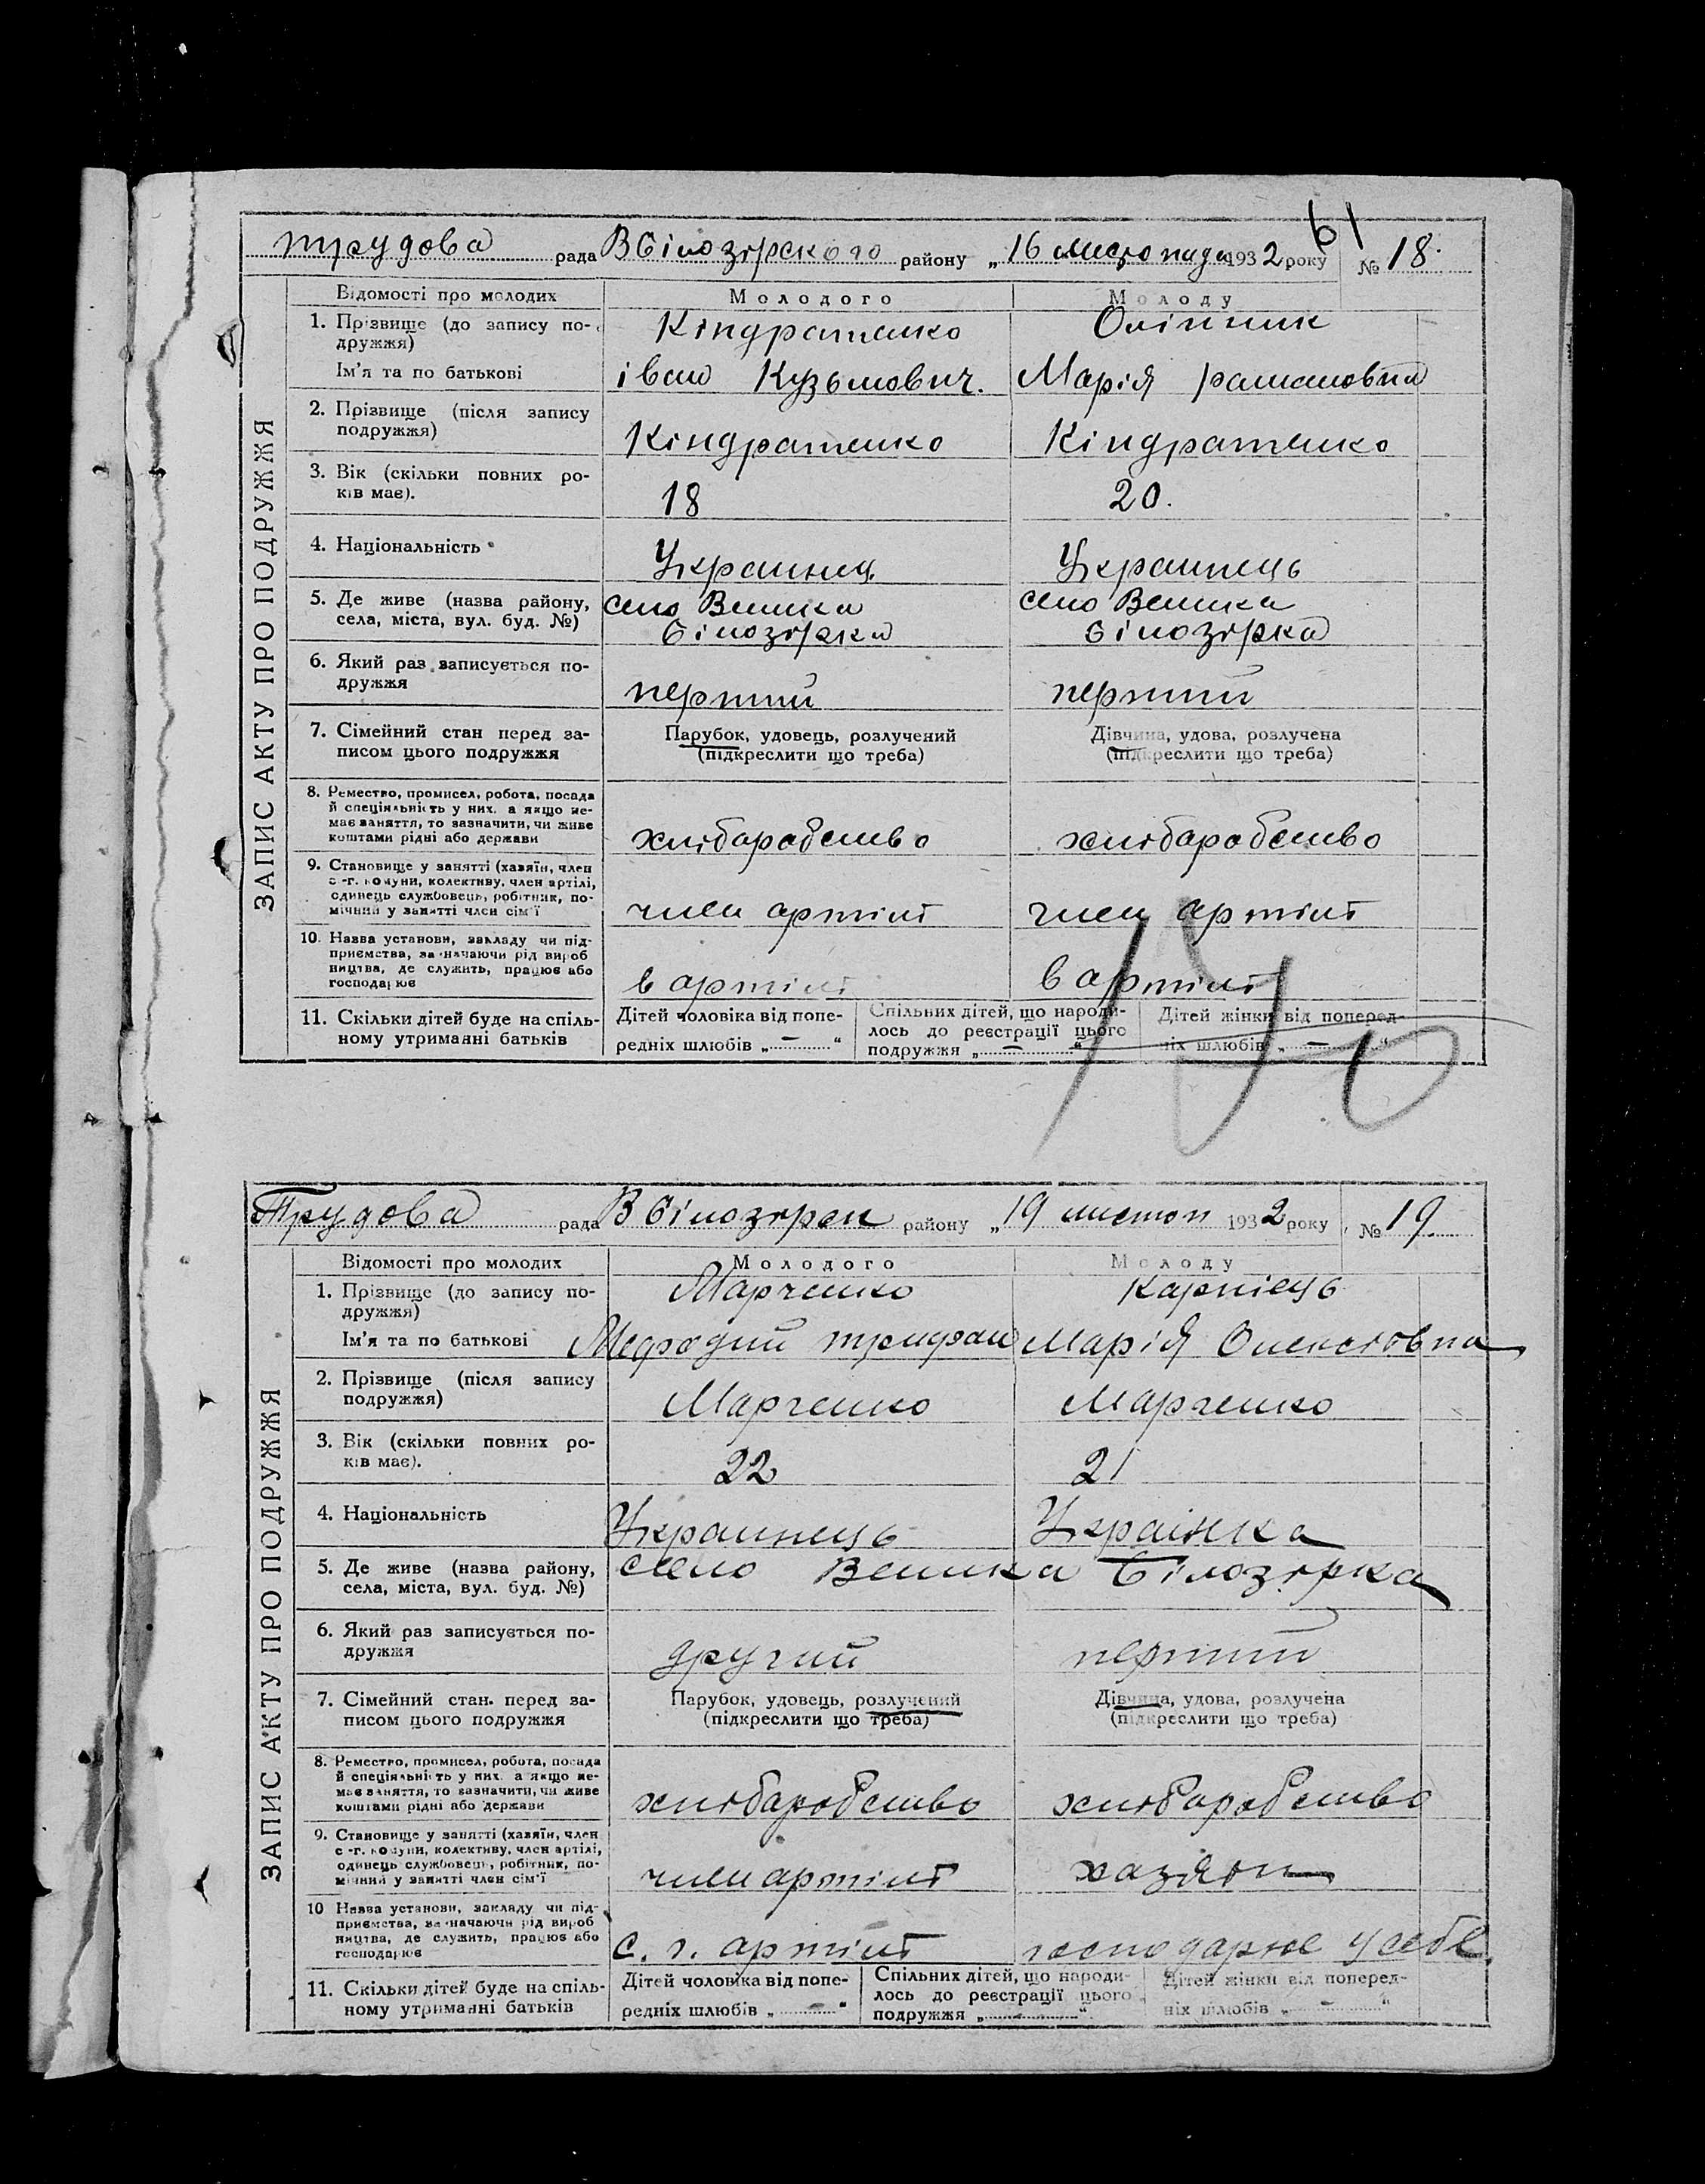 61
трудова рада В білозірского району „16 листопада 1932 року № 18.
ЗАПИС АКТУ ПРО ПОДРУЖЖЯ
Відомості про молодих Молодого Молоду
1. Прізвище (до запису по- Кіндратенко Олійник
дружжя)
Ім'я та по батькові іван Кузьмович. Марія рамановна
2. Прізвище (після запису
подружжя) Кіндратенко Кіндратенко
3. Вік (скільки повних ро-
ків має). 18 20.
4. Національність Украинец Украинець
5. Де живе (назва району, село Велика село Велика
села, міста, вул. буд. №) білозірка білозірка
6. Який раз записується по-
дружжя перший перший
7. Сімейний стан перед за- Парубок, удовець, розлучений Дівчина, удова, розлучена
писом цього подружжя (підкреслити що треба) (підкреслити що треба)
8. Ремество, промисел, робота, посада
й спеціяльність у них, а якщо не-
має заняття, то зазначити, чи живе
коштами рідні або держави хліборобство хліборобство
9. Становище у занятті (хазяїн, член
с.-г. комуни, колективу, член артілі,
одинець службовець, робітник, по-
мічний у занятті член сім'ї член артілі член артілі
10. Назва установи, закладу чи під-
приємства, зазначаючи рід вироб
ництва, де служить, працює або
господарює в артілі в артілі
11. Скільки дітей буде на спіль- Дітей чоловіка від попе- Спільних дітей, що народи- Дітей жінки від поперед-
ному утриманні батьків редніх шлюбів „ – “ лось до реєстрації цього ніх шлюбів „ – “
подружжя „ – “
Трудова рада В білозірск району „19 листоп 1932 року № 19.
ЗАПИС АКТУ ПРО ПОДРУЖЖЯ
Відомості про молодих Молодого Молоду
1. Прізвище (до запису по- Марченко Карпієць
дружжя)
Ім'я та по батькові Марія
2. Прізвище (після запису
подружжя) Марченко Марченко
3. Вік (скільки повних ро-
ків має). 22 21
4. Національність Украинець Украінка
5. Де живе (назва району, село Велика Білозірка
села, міста, вул. буд. №)
6. Який раз записується по-
дружжя другий перший
7. Сімейний стан. перед за- Парубок, удовець, розлучений Дівчина, удова, розлучена
писом цього подружжя (підкреслити що треба) (підкреслити що треба)
8. Ремество, промисел, робота, посада
й спеціяльність у них, а якщо не-
має заняття, то зазначити, чи живе
коштами рідні або держави хліборобство хліборобство
9. Становище у занятті (хазяїн, член
с.-г. комуни, колективу, член артілі,
одинець службовець, робітник, по-
мічний у занятті член сім'ї член артілі хазяїн
10 Назва установи, закладу чи під-
приємства, зазначаючи рід вироб
ництва, де служить, працює або
господарює с. г. артілі господарює у себе.
11. Скільки дітей буде на спіль- Дітей чоловіка від попе- Спільних дітей, що народи- Дітей жінки від поперед-
ному утриманні батьків редніх шлюбів „ – “ лось до реєстрації цього ніх шлюбів „ – “
подружжя „ – “